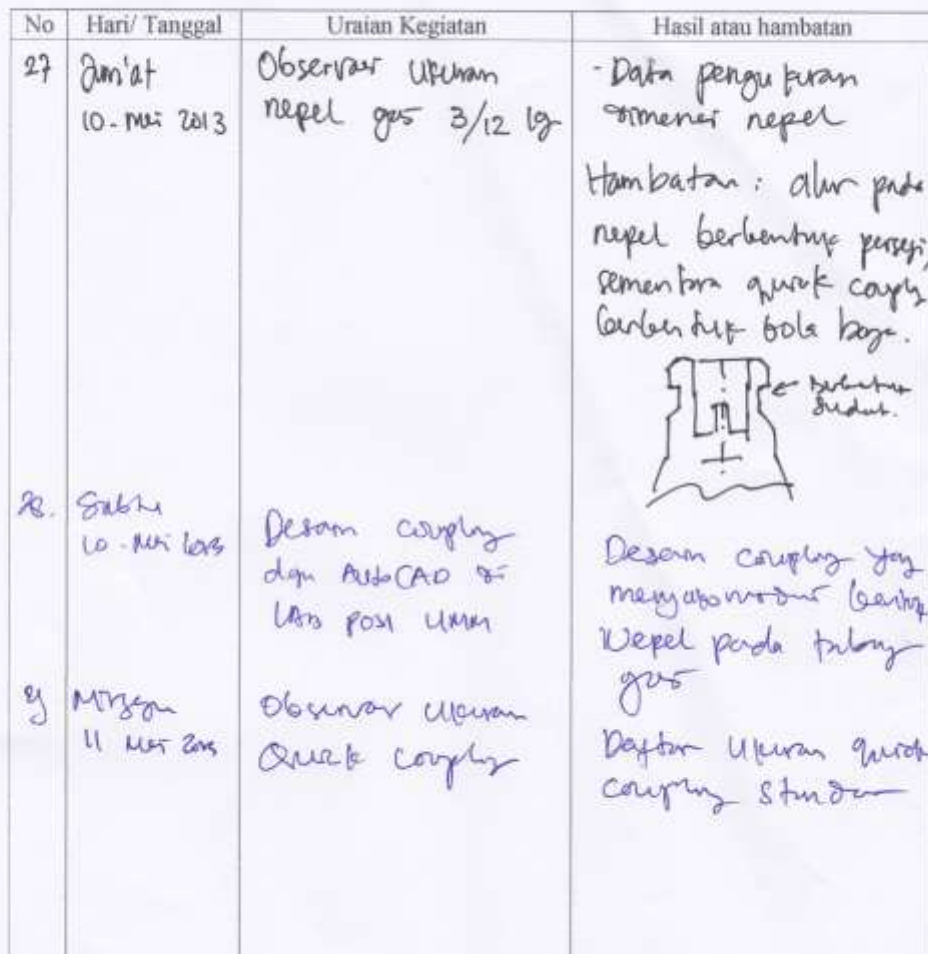 No Hari/ Tanggal Uraian Kegiatan Hasil atau hambatan
27 Jum'at Observasi Ukuran - Data pengukuran
10 - Mei 2013 nepel gas 3/12 kg dimensi nepel
Hambatan : alur pada
nepel berbentuk persegi,
sementara quick coupling
berbentuk bola baja.
berbentuk
sudut.
28. Sabtu
10 - Mei 2013
Desain coupling
dgn AutoCAD di
LAB UMM
Desain coupling yang
Nepel pada tabung
gas
Minggu
11 Mei 2013
Observasi Ukuran
Quick Coupling
Daftar Ukuran quick
coupling standar